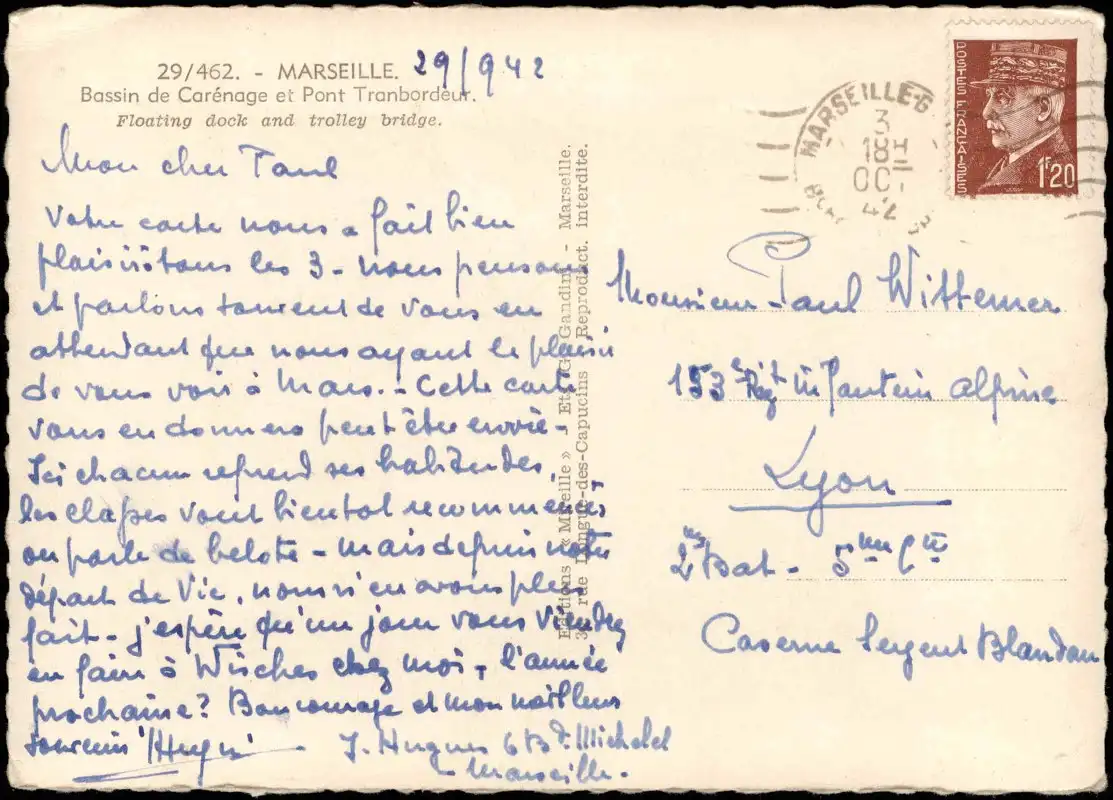 29/462. - MARSEILLE. 29/9 42
Bassin de Carénage et Pont Tranbordeur.
Floating dock and trolley bridge.
Mon cher Paul
Votre carte nous a fait bien
plaisir tous les 3 - nous pensons
et parlons souvent de vous en
attendant que nous ayant le plaisir
de vous voir à Mars. - Cette carte
vous en donnera peut être envie -
Ici chacun reprend ses habitudes,
les classes vont bientot recommencer
on parle de belote - mais depuis notre
départ de Vic, nous n'en avons plus
fait - j'espère qu'un jour vous viendrez
en faire à Wisches chez moi, l'année
prochaine? Bon courage et mon meilleur
souvenir Hugues
J. Hugues 6 Bd. Michelet
- Marseille -
Editions « Mireille » - Ets G. Gandini - Marseille.
rue Longue-des-Capucins Reproduct. interdite.
MARSEILLE-6
3
18H
OCT
42
POSTES FRANÇAISES
1F20
Monsieur Paul Wittemer
153e Régt Infanterie Alpine
Lyon
2me Bat - 5me Cie
Caserne Sergent Blandan